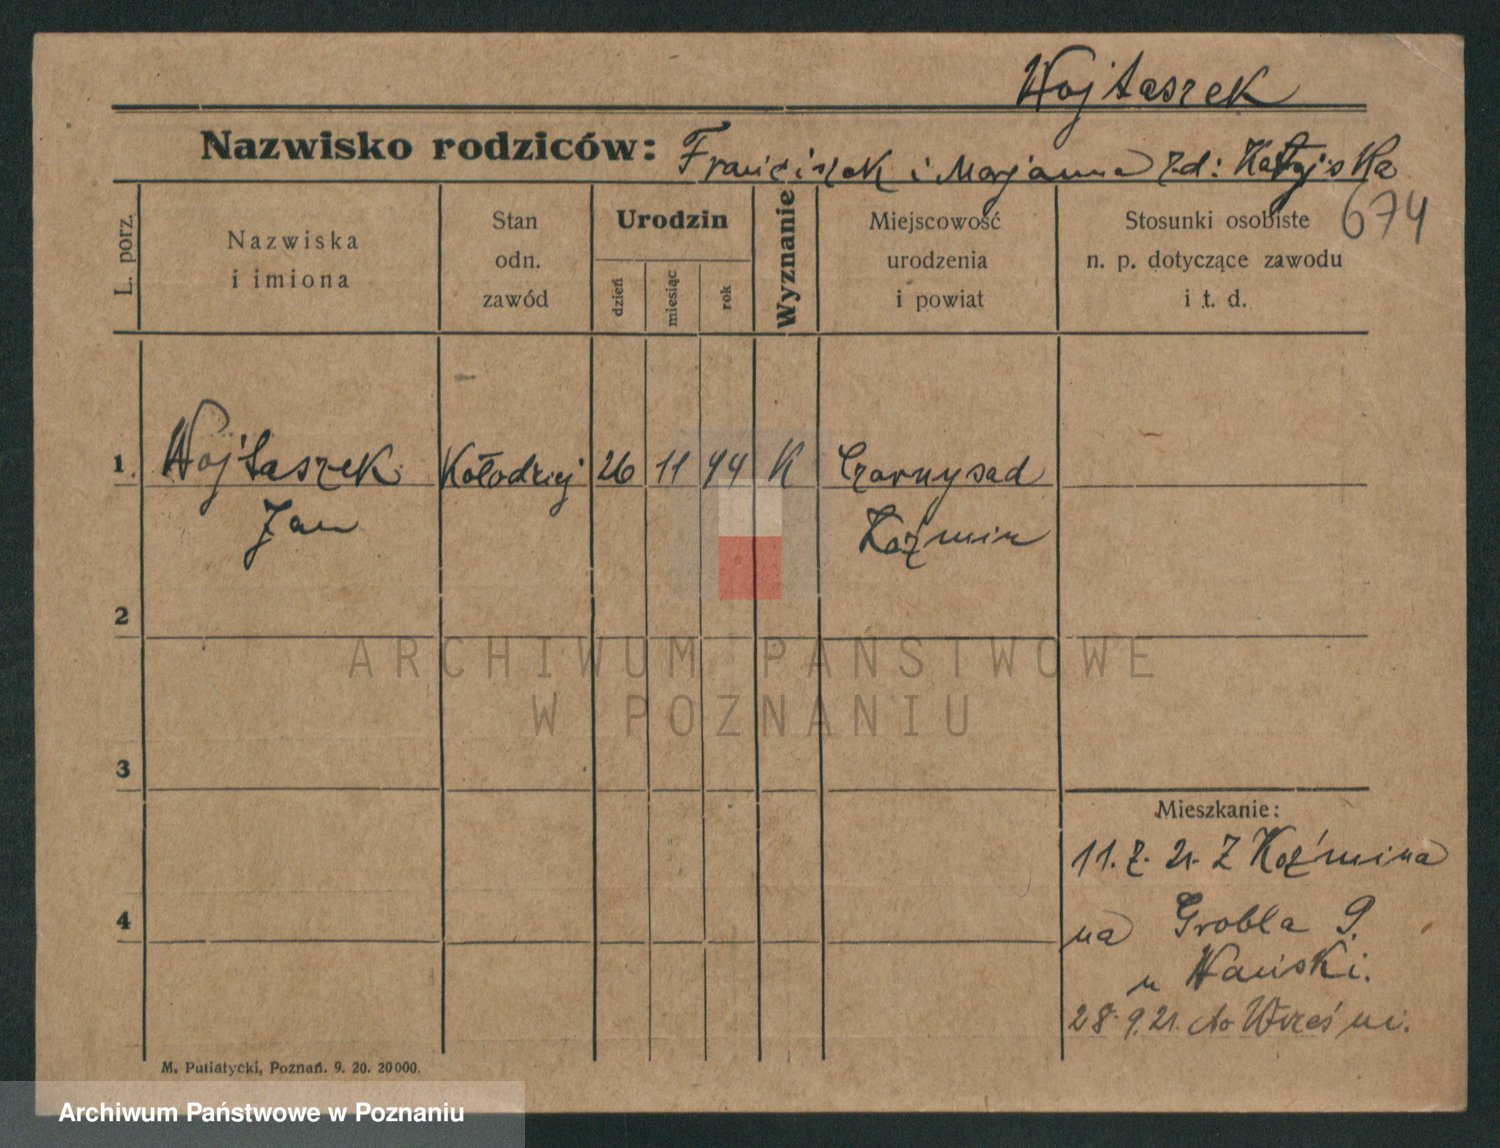 Wojtaszek
Nazwisko rodziców: Franciszek i Marjanna zd:
674
L. porz.
Nazwiska
i imiona
Stan
odn.
zawód
Urodzin
dzień
miesiąc
rok
Wyznanie
Miejscowość
urodzenia
i powiat
Stosunki osobiste
n. p. dotyczące zawodu
i t. d.
1. Wojtaszek Kołodziej 26 11 94 K Czarnysad
Jan Koźmin
2
ARCHIWUM PAŃSTWOWE
W POZNANIU
3
Mieszkanie:
11. 2. 21. Z Koźmina
4
na Grobla 9.
u Wański.
28. 9. 21. do Wrześni.
M. Putiatycki, Poznań. 9. 20. 20000.
Archiwum Państwowe w Poznaniu